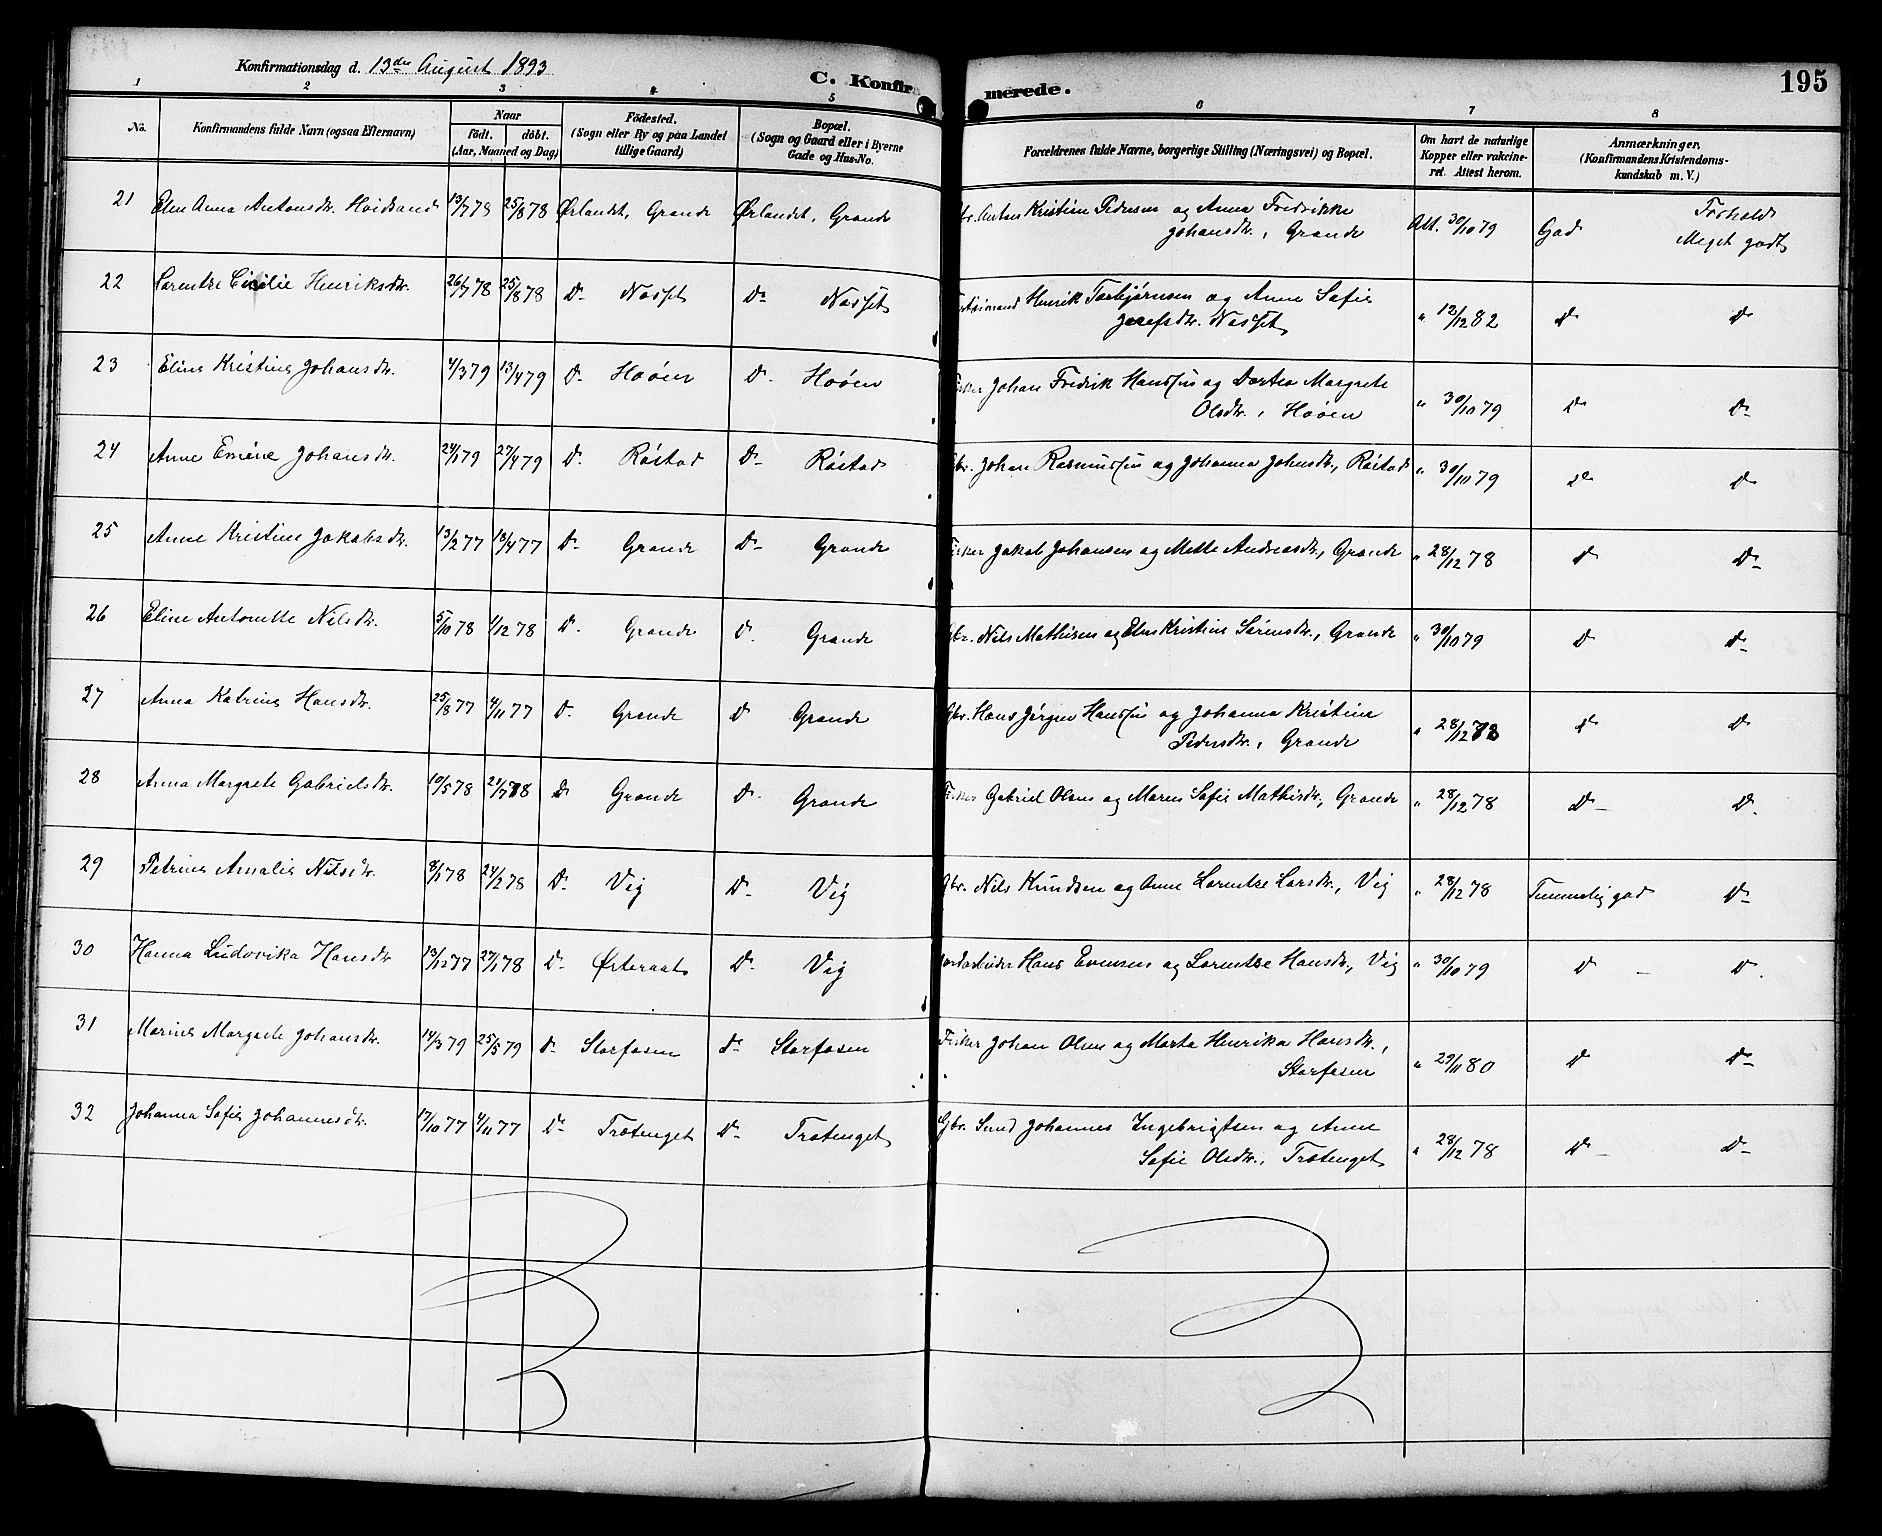 Konfirmationsdag d. 13de August 1893
C. Konfirmerede.
195
1 2 3 4 5 6 7 8
No. Konfirmandens fulde Navn (ogsaa Efternavn) Naar født. døbt. (Aar, Maaned og Dag) Fødested. (Sogn eller By og paa Landet tillige Gaard) Bopæl. (Sogn og Gaard eller i Byerne Gade og Hus-No. Forældrenes fulde Navne, borgerlige Stilling (Næringsvei) og Bopæl. Om havt de naturlige Kopper eller vakcineret. Attest herom. Anmærkninger, (Konfirmandens Kristendomskundskab m. V.)
21 Elen Anna Antonsdtr. Hoidsand 13/7 78 25/8 78 Ørlandet, Grande Ørlandet, Grande Gbr. Anton Kristian Pedersen og Anna Fredrikke Att. 30/10 79 God Forhold
Johansdtr., Grande Meget godt
22 Lorentze Cecilie Henriksdtr. 26/7 78 25/8 78 Do Næsset Do Næsset Henrik Torbjørnsen og Anne Sofie " 12/12 82 Do Do
Josefsdtr. Næsset
23 Eline Kristine Johansdtr. 4/3 79 13/4 79 Do Hoøen Do Hoøen Fisker Johan Fredrik Hanssen og Dortea Margrete " 30/10 79 Do Do
Olsdtr., Hoøen
24 Anne Emelie Johansdtr. 24/1 79 27/4 79 Do Røstad Do Røstad Gbr. Johan Rasmussen og Johanna Johnsdtr., Røstad " 30/10 79 Do Do
25 Anne Kristine Jakobsdtr. 13/2 77 13/4 77 Do Grande Do Grande Fisker Jakob Johansen og Mette Andreasdtr., Grande " 28/12 78 Do Do
26 Eline Antonette Nilsdtr. 5/10 78 1/12 78 Do Grande Do Grande Gbr. Nils Mathisen og Elen Kristine Sørensdtr., Grande " 30/10 79 Do Do
27 Anna Katrine Hansdtr. 25/8 77 4/11 77 Do Grande Do Grande Gbr. Hans Jørgen Hanssen og Johanna Kristine " 28/12 78 Do Do
Pedersdtr., Grande
28 Anna Margrete Gabrielsdtr. 10/5 78 21/7 78 Do Grande Do Grande Fisker Gabriel Olsen og Maren Sofie Mathisdtr., Grande " 28/12 78 Do Do
29 Petrine Amalie Nilsdtr. 8/1 78 24/2 78 Do Vig Do Vig Gbr. Nils Knudsen og Anne Lorentze Larsdtr., Vig " 28/12 78 Temmelig god Do
30 Hanna Ludovika Hansdtr 13/12 77 27/1 78 Do Østeraat Do Vig Hans Evensen og Lorentze Hansdtr., Vig " 30/10 79 Do Do
31 Marine Margrete Johansdtr. 14/3 79 25/5 79 Do Storfosen Do Storfosen Fisker Johan Olsen og Marta Henrika Hansdtr., " 29/11 80 Do Do
Storfosen
32 Johanna Sofie Johannesdtr. 17/10 77 4/11 77 Do Trøtenget Do Trøtenget Gbr. Smed Johannes Ingebrigtsen og Anne " 28/12 78 Do Do
Sofie Olsdtr., Trøtenget